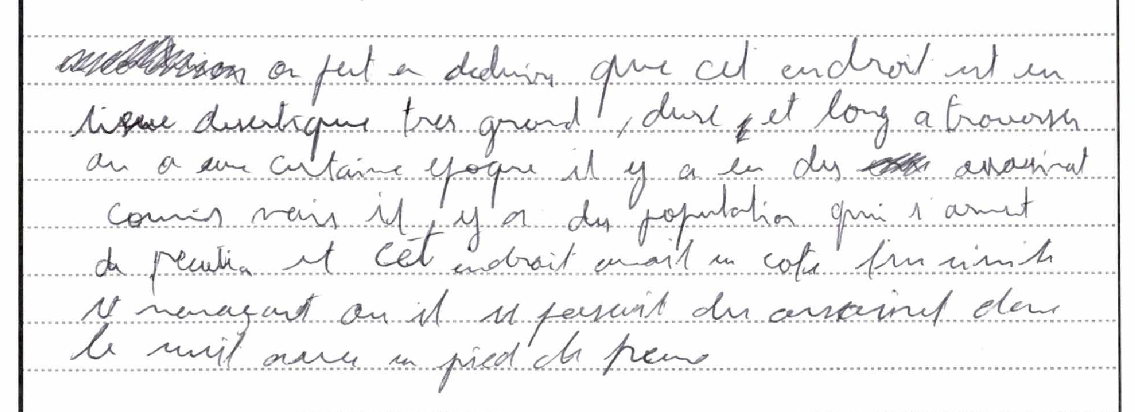 on peut en deduire que cet endroit est un
lieue desertique tres grand, dure, et long a traverser
ou a une certaine epoque il y a eu des assasinat
comis mais il y a des population qui s'arment
de et cet endroit avait un cote
et menaçant ou il se passait des assasinat dans
la nuit avec un pied de